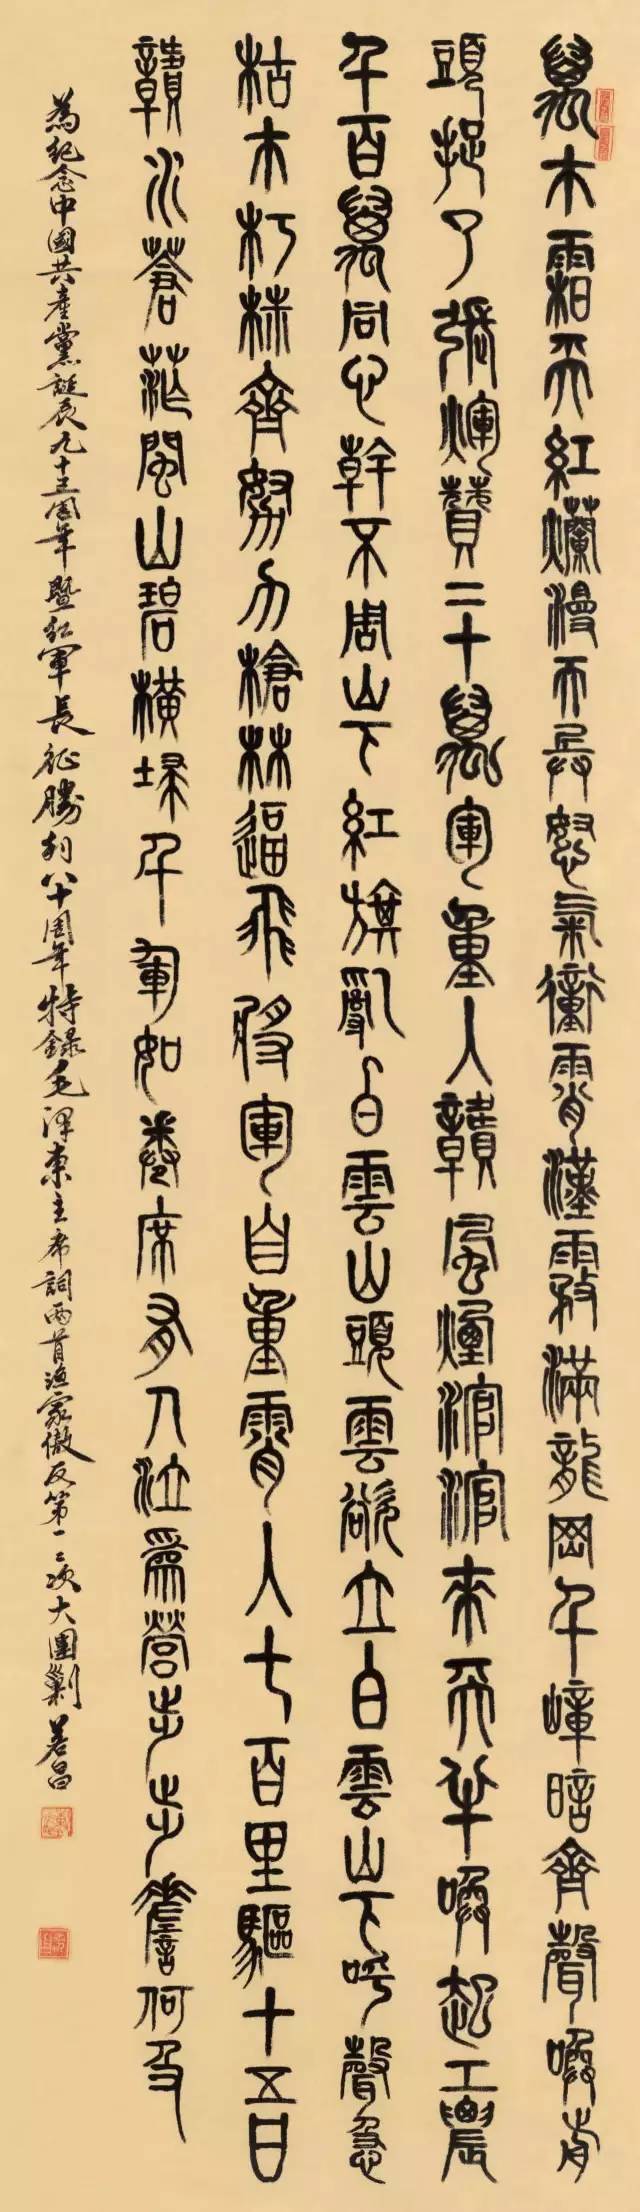 萬木霜天紅爛漫天兵怒氣衝霄漢霧滿龍岡千嶂暗齊聲喚前
頭捉了張煇贊二十萬軍重入贛風煙滾滾來天半喚起工農
千百萬同心幹不周山下紅旗亂白雲山頭雲欲立白雲山下呼聲急
枯木朽株齊努力槍林逼飛將軍自重霄入七百里驅十五日
贛水蒼茫閩山碧橫掃千軍如卷席有人泣為營步步嗟何及
為紀念中國共產黨誕辰九十三周年暨紅軍長征勝利八十周年特錄毛澤東主席詞兩首漁家傲反第一二次大圍剿 若昌